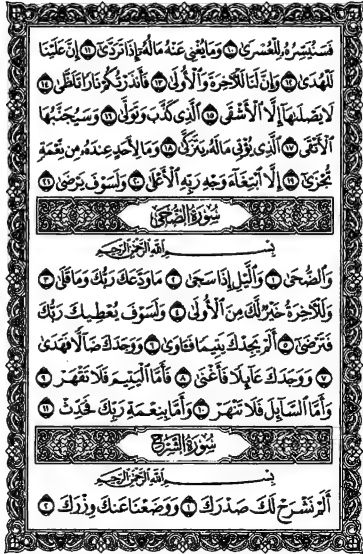 فَسَنُيَسِّرُهُۥ لِلْعُسْرَىٰ ١٠ وَمَا يُغْنِى عَنْهُ مَالُهُۥٓ إِذَا تَرَدَّىٰٓ ١١ إِنَّ عَلَيْنَا
لَلْهُدَىٰ ١٢ وَإِنَّ لَنَا لَلْءَاخِرَةَ وَٱلْأُولَىٰ ١٣ فَأَنذَرْتُكُمْ نَارًا تَلَظَّىٰ ١٤
لَا يَصْلَىٰهَآ إِلَّا ٱلْأَشْقَى ١٥ ٱلَّذِى كَذَّبَ وَتَوَلَّىٰ ١٦ وَسَيُجَنَّبُهَا
ٱلْأَتْقَى ١٧ ٱلَّذِى يُؤْتِى مَالَهُۥ يَتَزَكَّىٰ ١٨ وَمَا لِأَحَدٍ عِندَهُۥ مِن نِّعْمَةٍ
تُجْزَىٰٓ ١٩ إِلَّا ٱبْتِغَآءَ وَجْهِ رَبِّهِ ٱلْأَعْلَىٰ ٢٠ وَلَسَوْفَ يَرْضَىٰ ٢١
سُورَةُ الضُّحَى
بِسْمِ ٱللَّهِ ٱلرَّحْمَٰنِ ٱلرَّحِيمِ
وَٱلضُّحَىٰ ١ وَٱلَّيْلِ إِذَا سَجَىٰ ٢ مَا وَدَّعَكَ رَبُّكَ وَمَا قَلَىٰ ٣
وَلَلْءَاخِرَةُ خَيْرٌ لَّكَ مِنَ ٱلْأُولَىٰ ٤ وَلَسَوْفَ يُعْطِيكَ رَبُّكَ
فَتَرْضَىٰٓ ٥ أَلَمْ يَجِدْكَ يَتِيمًا فَـَٔاوَىٰ ٦ وَوَجَدَكَ ضَآلًّا فَهَدَىٰ
٧ وَوَجَدَكَ عَآئِلًا فَأَغْنَىٰ ٨ فَأَمَّا ٱلْيَتِيمَ فَلَا تَقْهَرْ ٩
وَأَمَّا ٱلسَّآئِلَ فَلَا تَنْهَرْ ١٠ وَأَمَّا بِنِعْمَةِ رَبِّكَ فَحَدِّثْ ١١
سُورَةُ الشَّرْحِ
بِسْمِ ٱللَّهِ ٱلرَّحْمَٰنِ ٱلرَّحِيمِ
أَلَمْ نَشْرَحْ لَكَ صَدْرَكَ ١ وَوَضَعْنَا عَنكَ وِزْرَكَ ٢